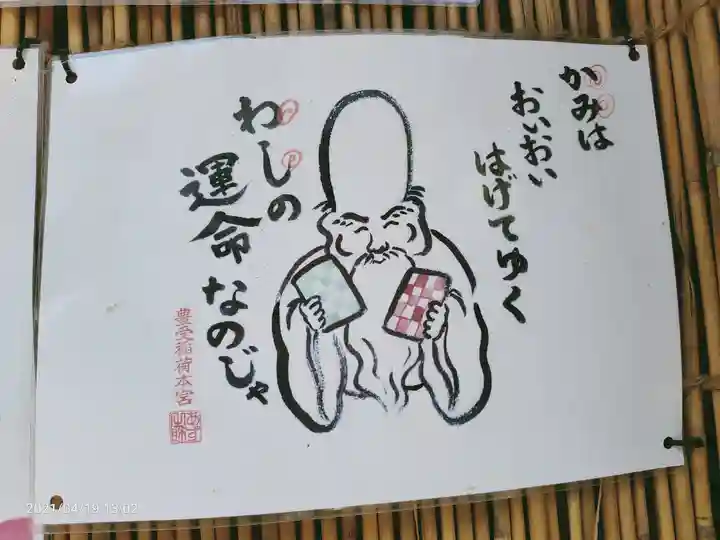 かみは
おいおい
はげてゆく
わしの
運命なのじゃ
豊受稲荷本宮
2021/04/19 13:02